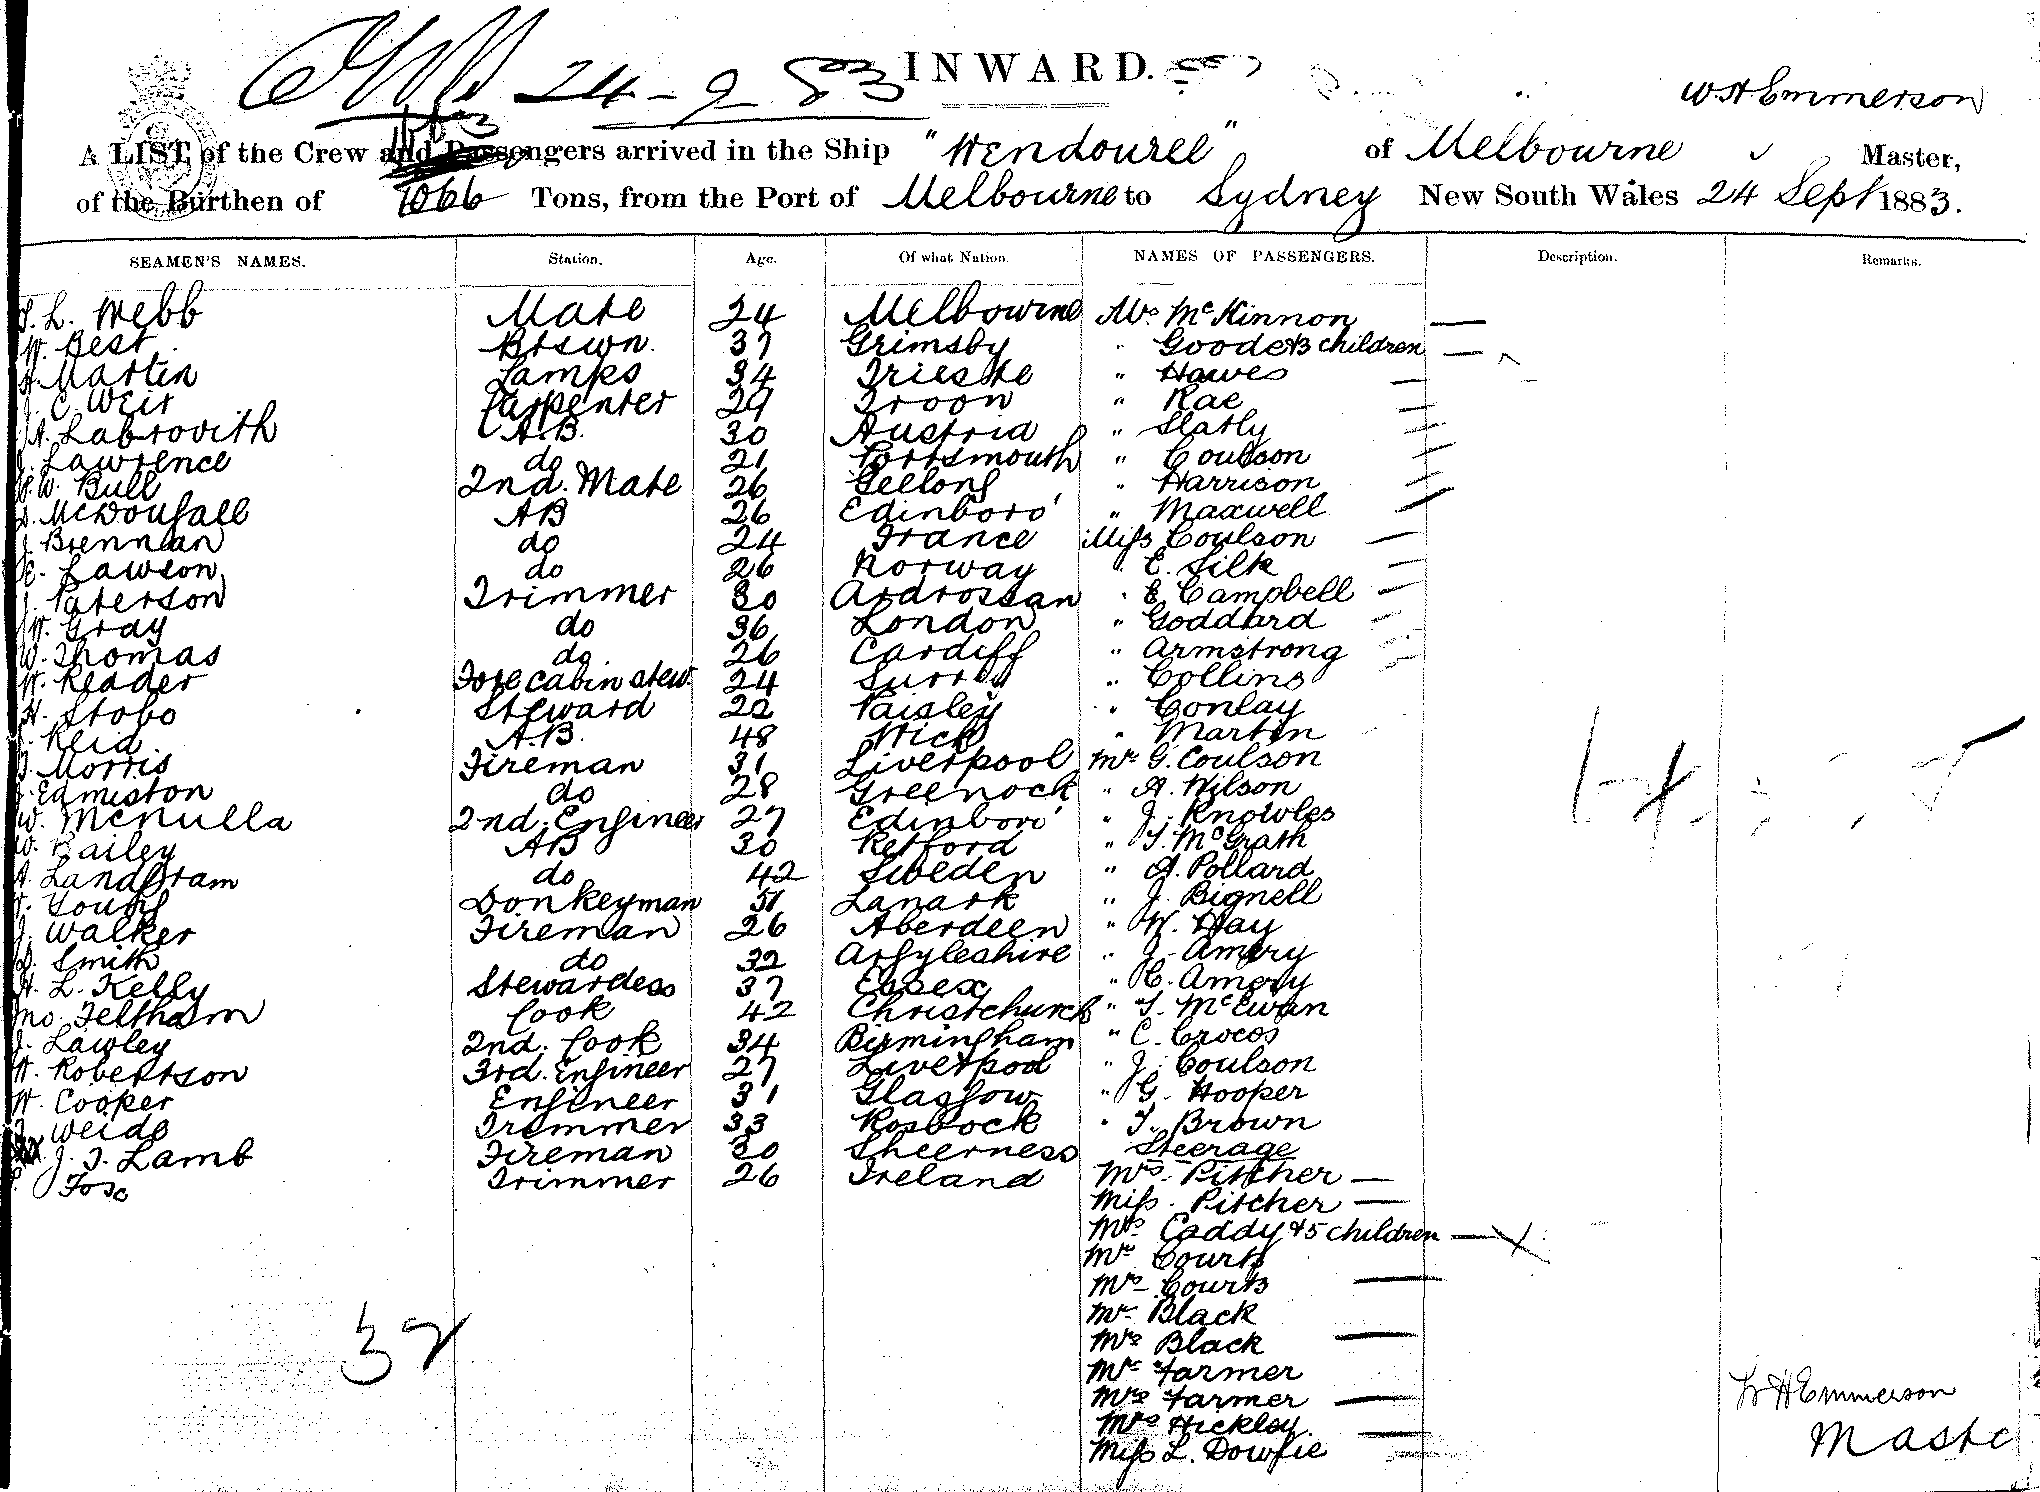 24-9-83 INWARD. W H Emmerson
A LIST of the Crew and Passengers arrived in the Ship "Wendouree" of Melbourne Master,
of the Burthen of 1066 Tons, from the Port of Melbourne to Sydney New South Wales 24 Sept 1883.
SEAMEN'S NAMES. Station. Age. Of what Nation. NAMES OF PASSENGERS. Description. Remarks.
L. Webb Mate 24 Melbourne Mrs McKinnon
W. Best Btswn. 37 Grimsby " Goode & 3 children
Martin Lamps 34 Trieste " Hawes
J. C. Weir Carpenter 29 Troon " Rae
A. Labrovith A.B. 30 Austria " Slatly
J. Lawrence do 21 Portsmouth " Coulson
W. Bull 2nd. Mate 26 Geelong " Harrison
McDougall AB 26 Edinboro' " Maxwell
J. Brennan do 24 France Miss Coulson
C. Lawson do 26 Norway " E. Silk
J. Paterson Trimmer 30 Ardrossan " E Campbell
W. Gray do 36 London " Goddard
W. Thomas do 26 Cardiff " Armstrong
W. Reader Fore cabin stew. 24 Surrey " Collins
H. Stobo Steward 22 Paisley " Conlay
J. Reid A.B. 48 Wick " Martin
J. Morris Fireman 31 Liverpool Mr G. Coulson
J. Edmiston do 28 Greenock " A. Wilson
W. McNulla 2nd. Engineer 27 Edinboro' " J. Knowles
W. Bailey AB 30 Retford " T. McGrath
A. Landgram do 42 Sweden " A. Pollard
Young Donkeyman 51 Lanark " J. Bignell
J. Walker Fireman 26 Aberdeen " W. Hay
D. Smith do 32 Argyleshire " J. Amery
H. L. Kelly Stewardess 37 Essex " C. Amery
Jno. Feltham Cook 42 Christchurch " T. McEwan
J. Lawley 2nd. Cook 34 Birmingham " C. Crocos
W. Robertson 3rd. Engineer 27 Liverpool " J. Coulson
W. Cooper Engineer 31 Glasgow " G. Hooper
Weide Tremmer 33 Rosbock " T. Brown
J. T. Lamb Fireman 30 Sheerness Steerage
Fox Trimmer 26 Ireland Mrs. Pitcher
Miss. Pitcher
Mrs Caddy & 5 children
Mr Courts
Mrs Courts
Mr Black
32
Mrs Black
Mr Farmer
Mrs Farmer W H Emmerson
Mrs Hickley
Miss L. Dowfie Maste